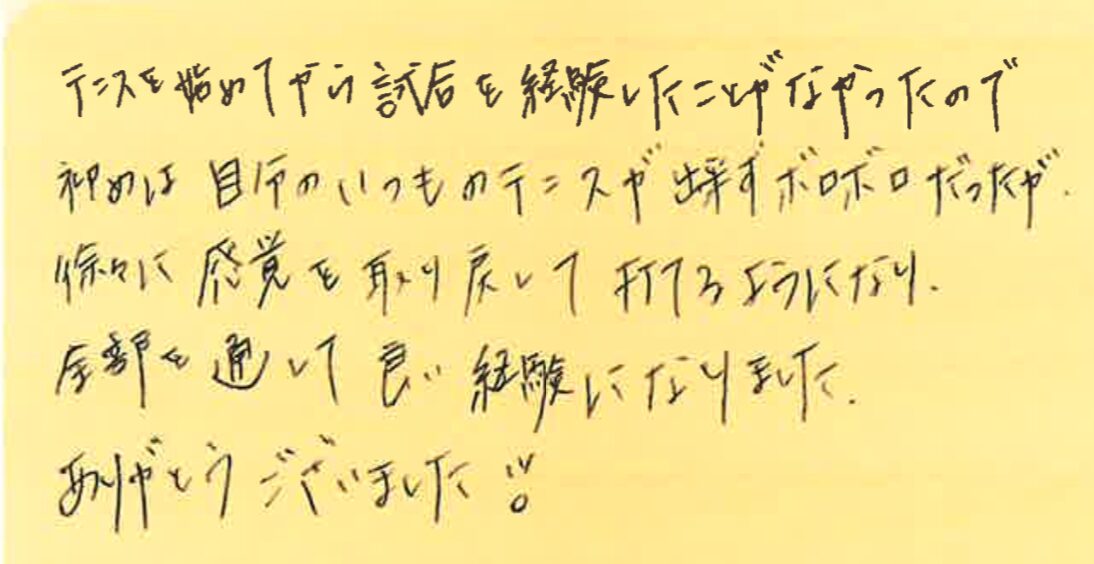 テニスを始めてから試合を経験したことがなかったので
初めは自分のいつものテニスが出来ずボロボロだったが、
徐々に感覚を取り戻して打てるようになり、
全部を通して良い経験になりました。
ありがとうございました!!